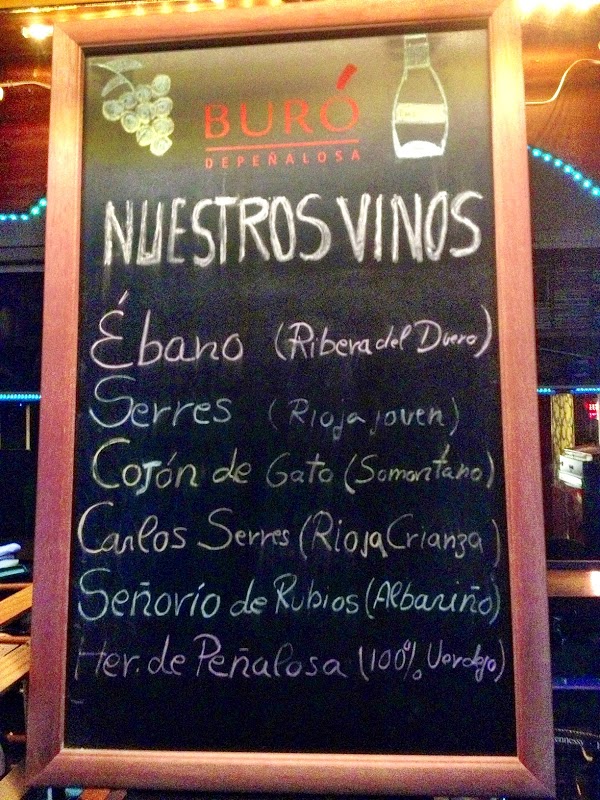 BURÓ
DEPEÑALOSA
NUESTROS VINOS
Ébano (Ribera del Duero)
Serres (Rioja joven)
Cojón de Gato (Somontano)
Carlos Serres (Rioja Crianza)
Señorío de Rubios (Albariño)
Her. de Peñalosa (100% Verdejo)